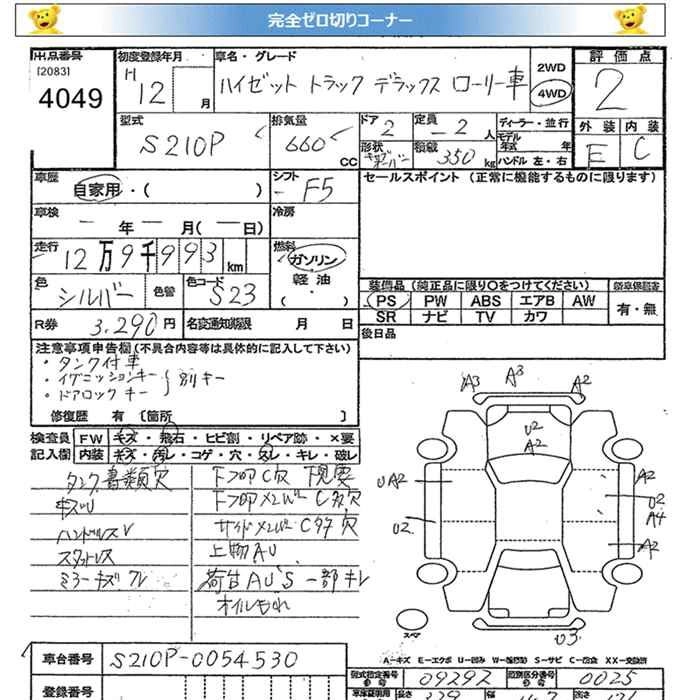 完全ゼロ切りコーナー
出品番号 初度登録年月 車名・グレード 評価点
[2083] H 2WD
4049 12 月 ハイゼット トラック デラックス ローリー車 4WD 2
型式 排気量 ドア 定員 ディーラー・並行 外装 内装
S210P 660 CC 2 2 人 モデル年式 年 E C
形状 積載 350 kg ハンドル 左・右
車歴 シフト セールスポイント (正常に機能するものに限ります)
自家用・( ) F5
車検 冷房
― 年 ― 月( ― 日)
走行 燃料
12万9千993 km ガソリン
色 色替 色コード 軽油
シルバー S23 ・( )
装備品 (純正品に限り○をつけてください) 新車保証書
PS PW ABS エアB AW 有・無
SR ナビ TV カワ
R券 3,290円 名変通知期限 月 日 後日品
注意事項申告欄 (不具合内容等は具体的に記入して下さい)
・タンク付車
・イグニッションキー
・ドアロックキー
別キー
修復歴 有 〔箇所 〕
検査員 FW キズ・飛石・ヒビ割・リペア跡・×要
記入欄 内装 キズ・汚レ・コゲ・穴・スレ・キレ・破レ
タンク書類欠 下フ部C穴 下現要
キズU 下フ部メンバーC多穴
ハンドルスレ サイドメンバーC多穴
スタットレス 上物AU
ミラーキズワレ 荷台AU'S 一部キレ
オイルもれ
A3 A3 A2
U2
A2
UA2 A2
U2 U2
A4
A2
U3
スペア
A-キズ E-エクボ U-凹み W-補修跡 S-サビ C-腐食 XX-交換済
車台番号 S210P-0054530
型式指定番号 09292 類別区分番号 0025
登録番号 車庫証明用 長さ 329